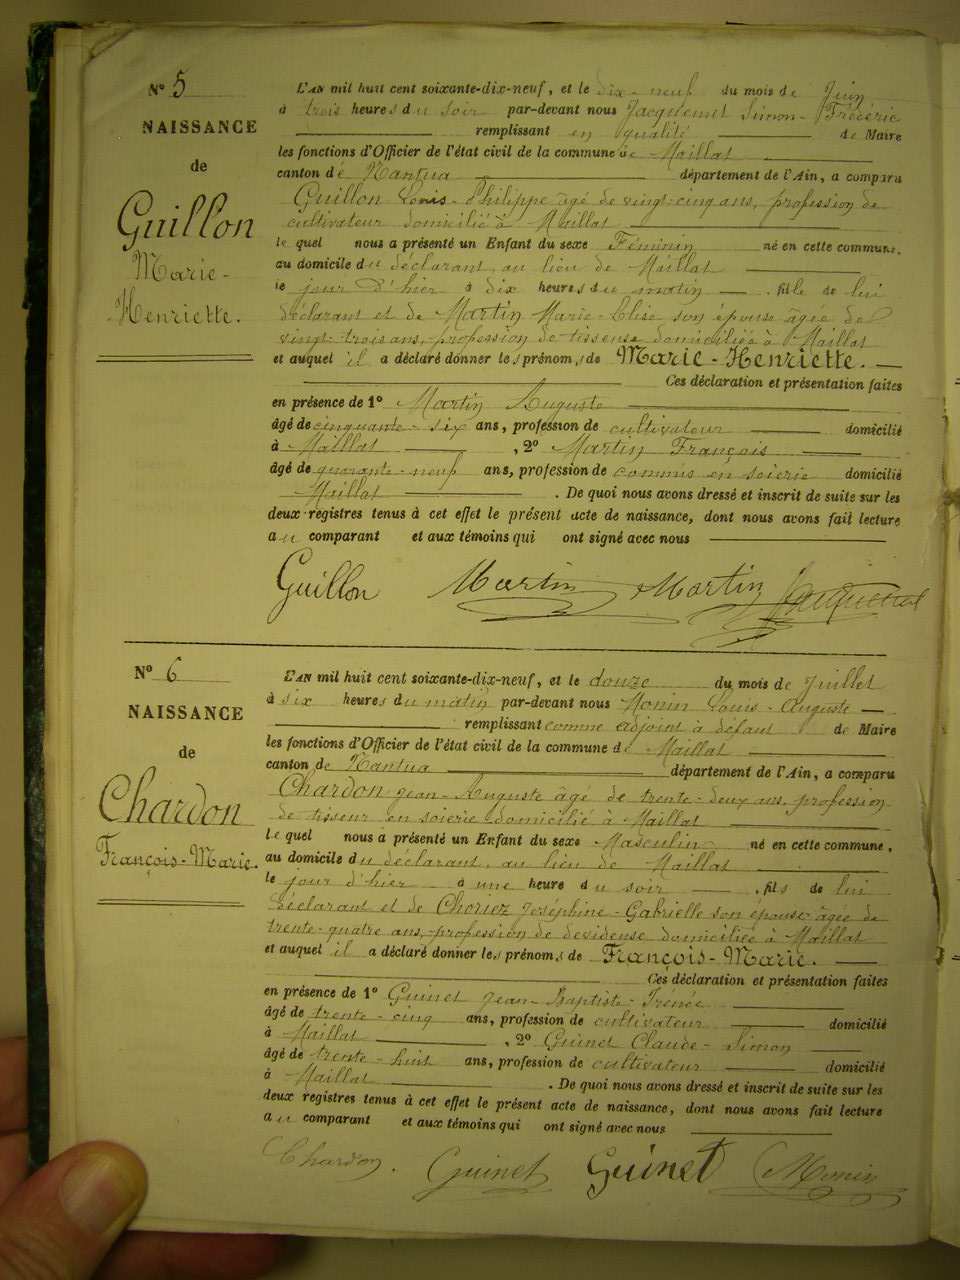 N° 5
NAISSANCE
de
Guillon
Marie-
Henriette.
L'AN mil huit cent soixante-dix-neuf, et le dix-neuf du mois de Juin
à trois heures du soir par-devant nous Jacquemet Simon-Frédéric
remplissant en qualité de Maire
les fonctions d'Officier de l'état civil de la commune de Maillat
canton de Nantua département de l'Ain, a comparu
Guillon Louis-Philippe âgé de vingt-cinq ans, profession de
cultivateur domicilié à Maillat
le quel nous a présenté un Enfant du sexe Féminin né en cette commune,
au domicile du déclarant, au lieu de Maillat
le jour d'hier à dix heures du matin, fille de lui
déclarant et de Martin Marie-Elise son épouse âgée de
vingt-trois ans, profession de tisseuse domiciliée à Maillat
et auquel il a déclaré donner les prénoms de Marie-Henriette.
Ces déclaration et présentation faites
en présence de 1° Martin Auguste
âgé de cinquante-six ans, profession de cultivateur domicilié
à Maillat, 2° Martin François
âgé de quarante-neuf ans, profession de commis en soierie domicilié
Maillat. De quoi nous avons dressé et inscrit de suite sur les
deux registres tenus à cet effet le présent acte de naissance, dont nous avons fait lecture
au comparant et aux témoins qui ont signé avec nous
Guillon Martin Martin Jacquemet
N° 6
NAISSANCE
de
Chardon
François-Marie.
L'AN mil huit cent soixante-dix-neuf, et le douze du mois de Juillet
à six heures du matin par-devant nous Monin Louis-Auguste
remplissant comme adjoint à défaut de Maire
les fonctions d'Officier de l'état civil de la commune de Maillat
canton de Nantua département de l'Ain, a comparu
Chardon Jean-Auguste âgé de trente-deux ans, profession
de tisseur en soierie domicilié à Maillat
le quel nous a présenté un Enfant du sexe Masculin né en cette commune,
au domicile du déclarant, au lieu de Maillat
le jour d'hier à une heure du soir, fils de lui
déclarant et de Choriez Joséphine-Gabrielle son épouse âgée de
trente-quatre ans, profession de devideuse domiciliée à Maillat
et auquel il a déclaré donner les prénoms de François-Marie.
Ces déclaration et présentation faites
en présence de 1° Guinet Jean-Baptiste-Irénée
âgé de trente-cinq ans, profession de cultivateur domicilié
à Maillat, 2° Guinet Claude-Simon
âgé de trente-huit ans, profession de cultivateur domicilié
à Maillat. De quoi nous avons dressé et inscrit de suite sur les
deux registres tenus à cet effet le présent acte de naissance, dont nous avons fait lecture
au comparant et aux témoins qui ont signé avec nous
Chardon. Guinet Guinet Monin